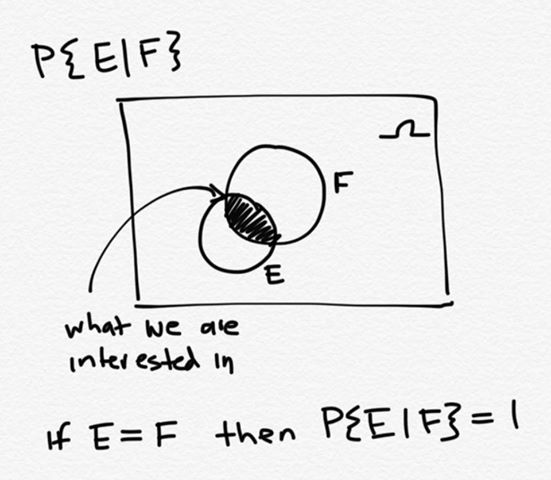 P{E|F}
Ω
F
E
what we are
interested in
if E = F then P{E|F} = 1